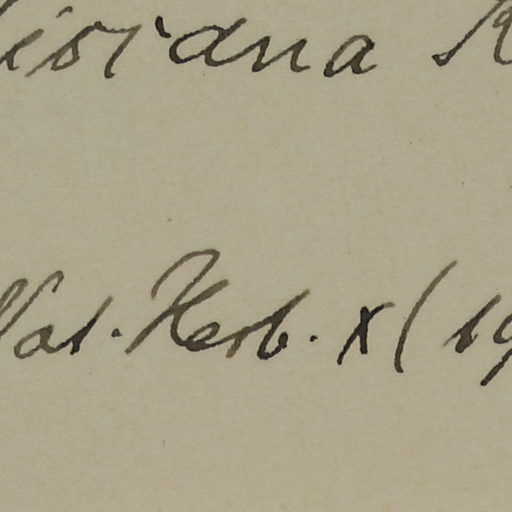 isiana R
Nat. Herb. X (19